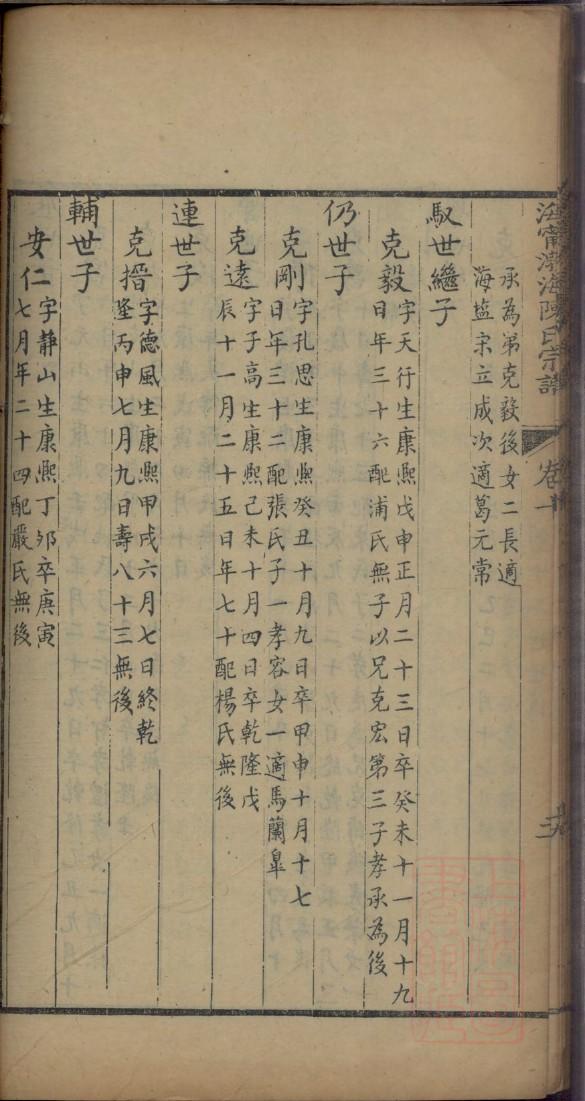 海甯渤海陳氏宗譜
卷十
承為弟克毅後女二長適
海塩宋立成次適葛元常
馭世繼子
克毅字天行生康熙戊申正月二十三日卒癸未十一月十九
日年三十六配浦氏無子以兄克宏第三子孝承為後
仍世子
克剛字孔思生康熙癸丑十月九日卒甲申十月十七
日年三十二配張氏子一孝容女一適馬蘭臯
克遠字子高生康熙己未十月四日卒乾隆戊
辰十一月二十五日年七十配楊氏無後
連世子
克搢字德風生康熙甲戌六月七日終乾
隆丙申七月九日壽八十三無後
輔世子
安仁字靜山生康熙丁卯卒庚寅
七月年二十四配嚴氏無後